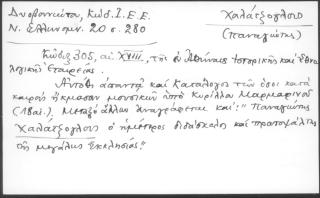 Δυοβουνιώτου, Κώδ. Ι.Ε.Ε.
Ν. Ελληνομν. 20 σ. 280
Χαλάτζογλους
(Παναγιώτης)
Κώδιξ 305, αι. XVIII, της εν Αθήναις Ιστορικής και Εθνο-
λογικής Εταιρείας.
Αυτόθι απαντά και Κατάλογος των όσοι κατά
καιρούς ήκμασαν μουσικών υπό Κυρίλλου Μαρμαρινού
(18αι.). Μεταξύ άλλων αναγράφεται και: "Παναγιώτης
Χαλάτζογλους ο ημέτερος διδάσκαλος και πρωτοψάλτης
της μεγάλης Εκκλησίας."